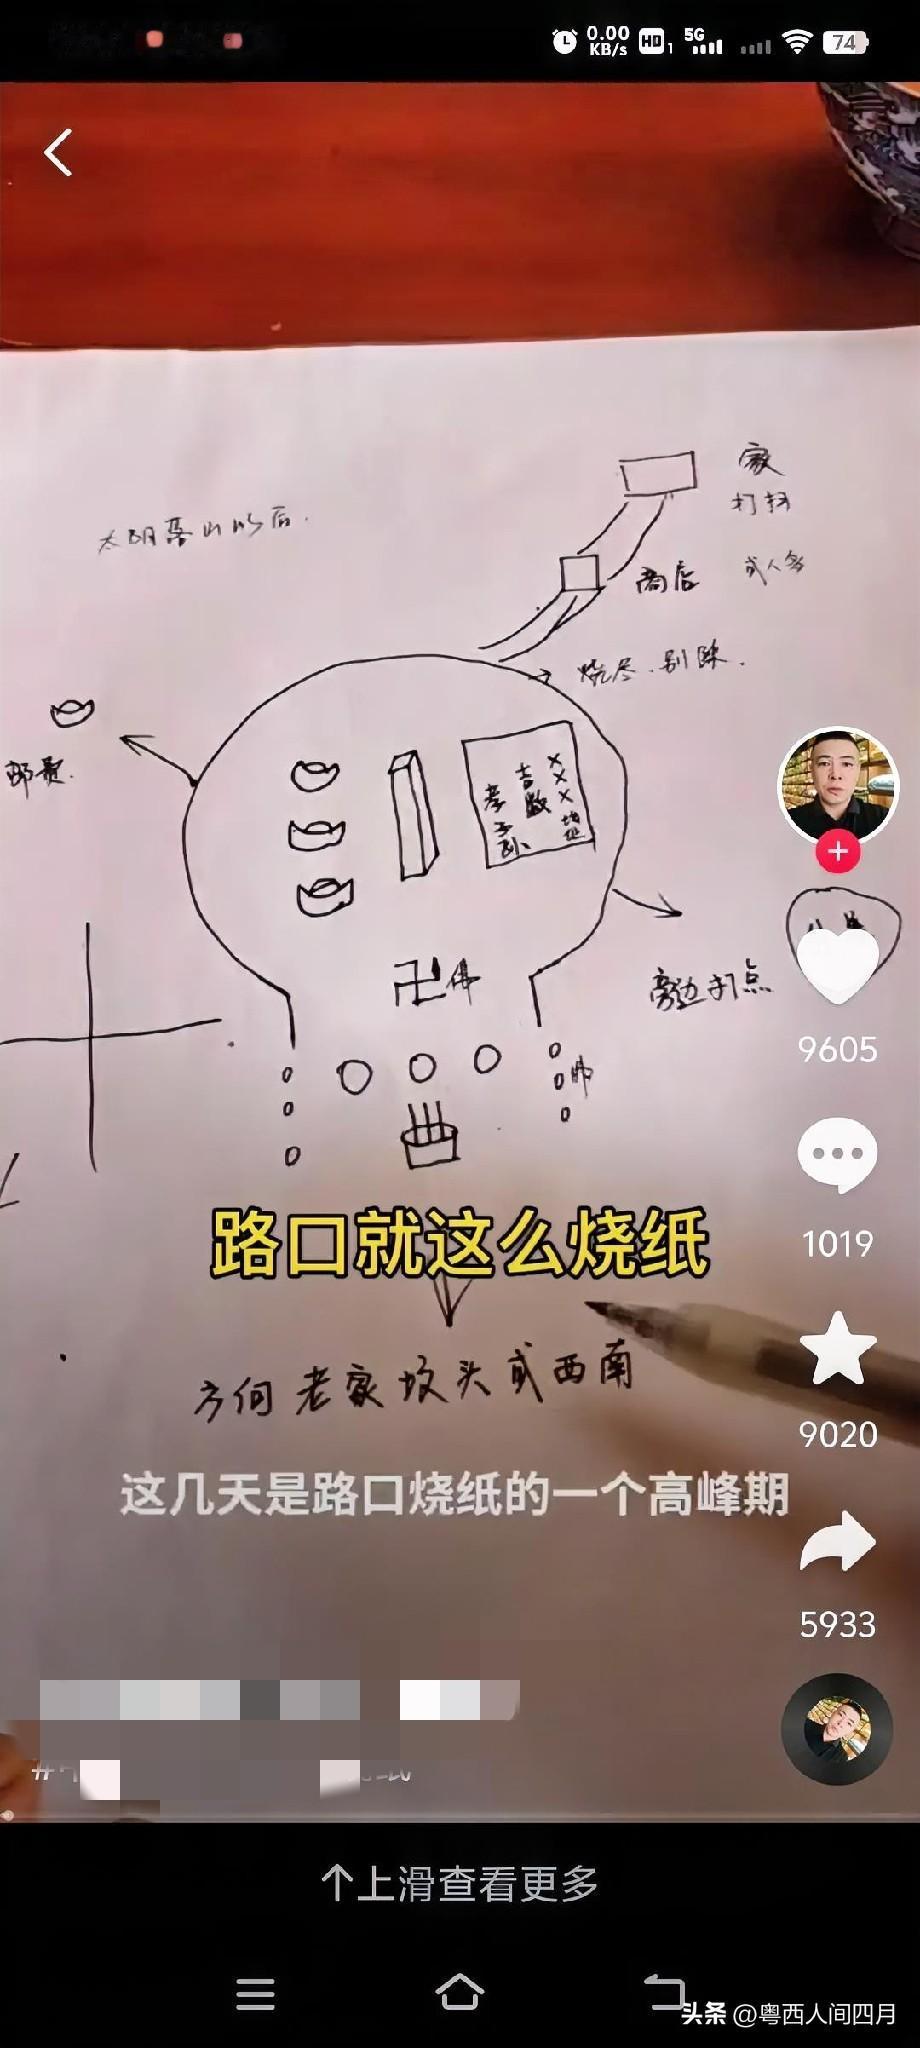 0.00
KB/s
HD 1
5G
74
太阴落山以后.
家
打扫
商店
或人多
烧尽.别踩.
邮费.
×××地址
吉数
孝子孙
卍佛
旁边打点
9605
1019
路口就这么烧纸
方向 老家坟头或西南
9020
这几天是路口烧纸的一个高峰期
5933
个上滑查看更多
头条 @粤西人间四月